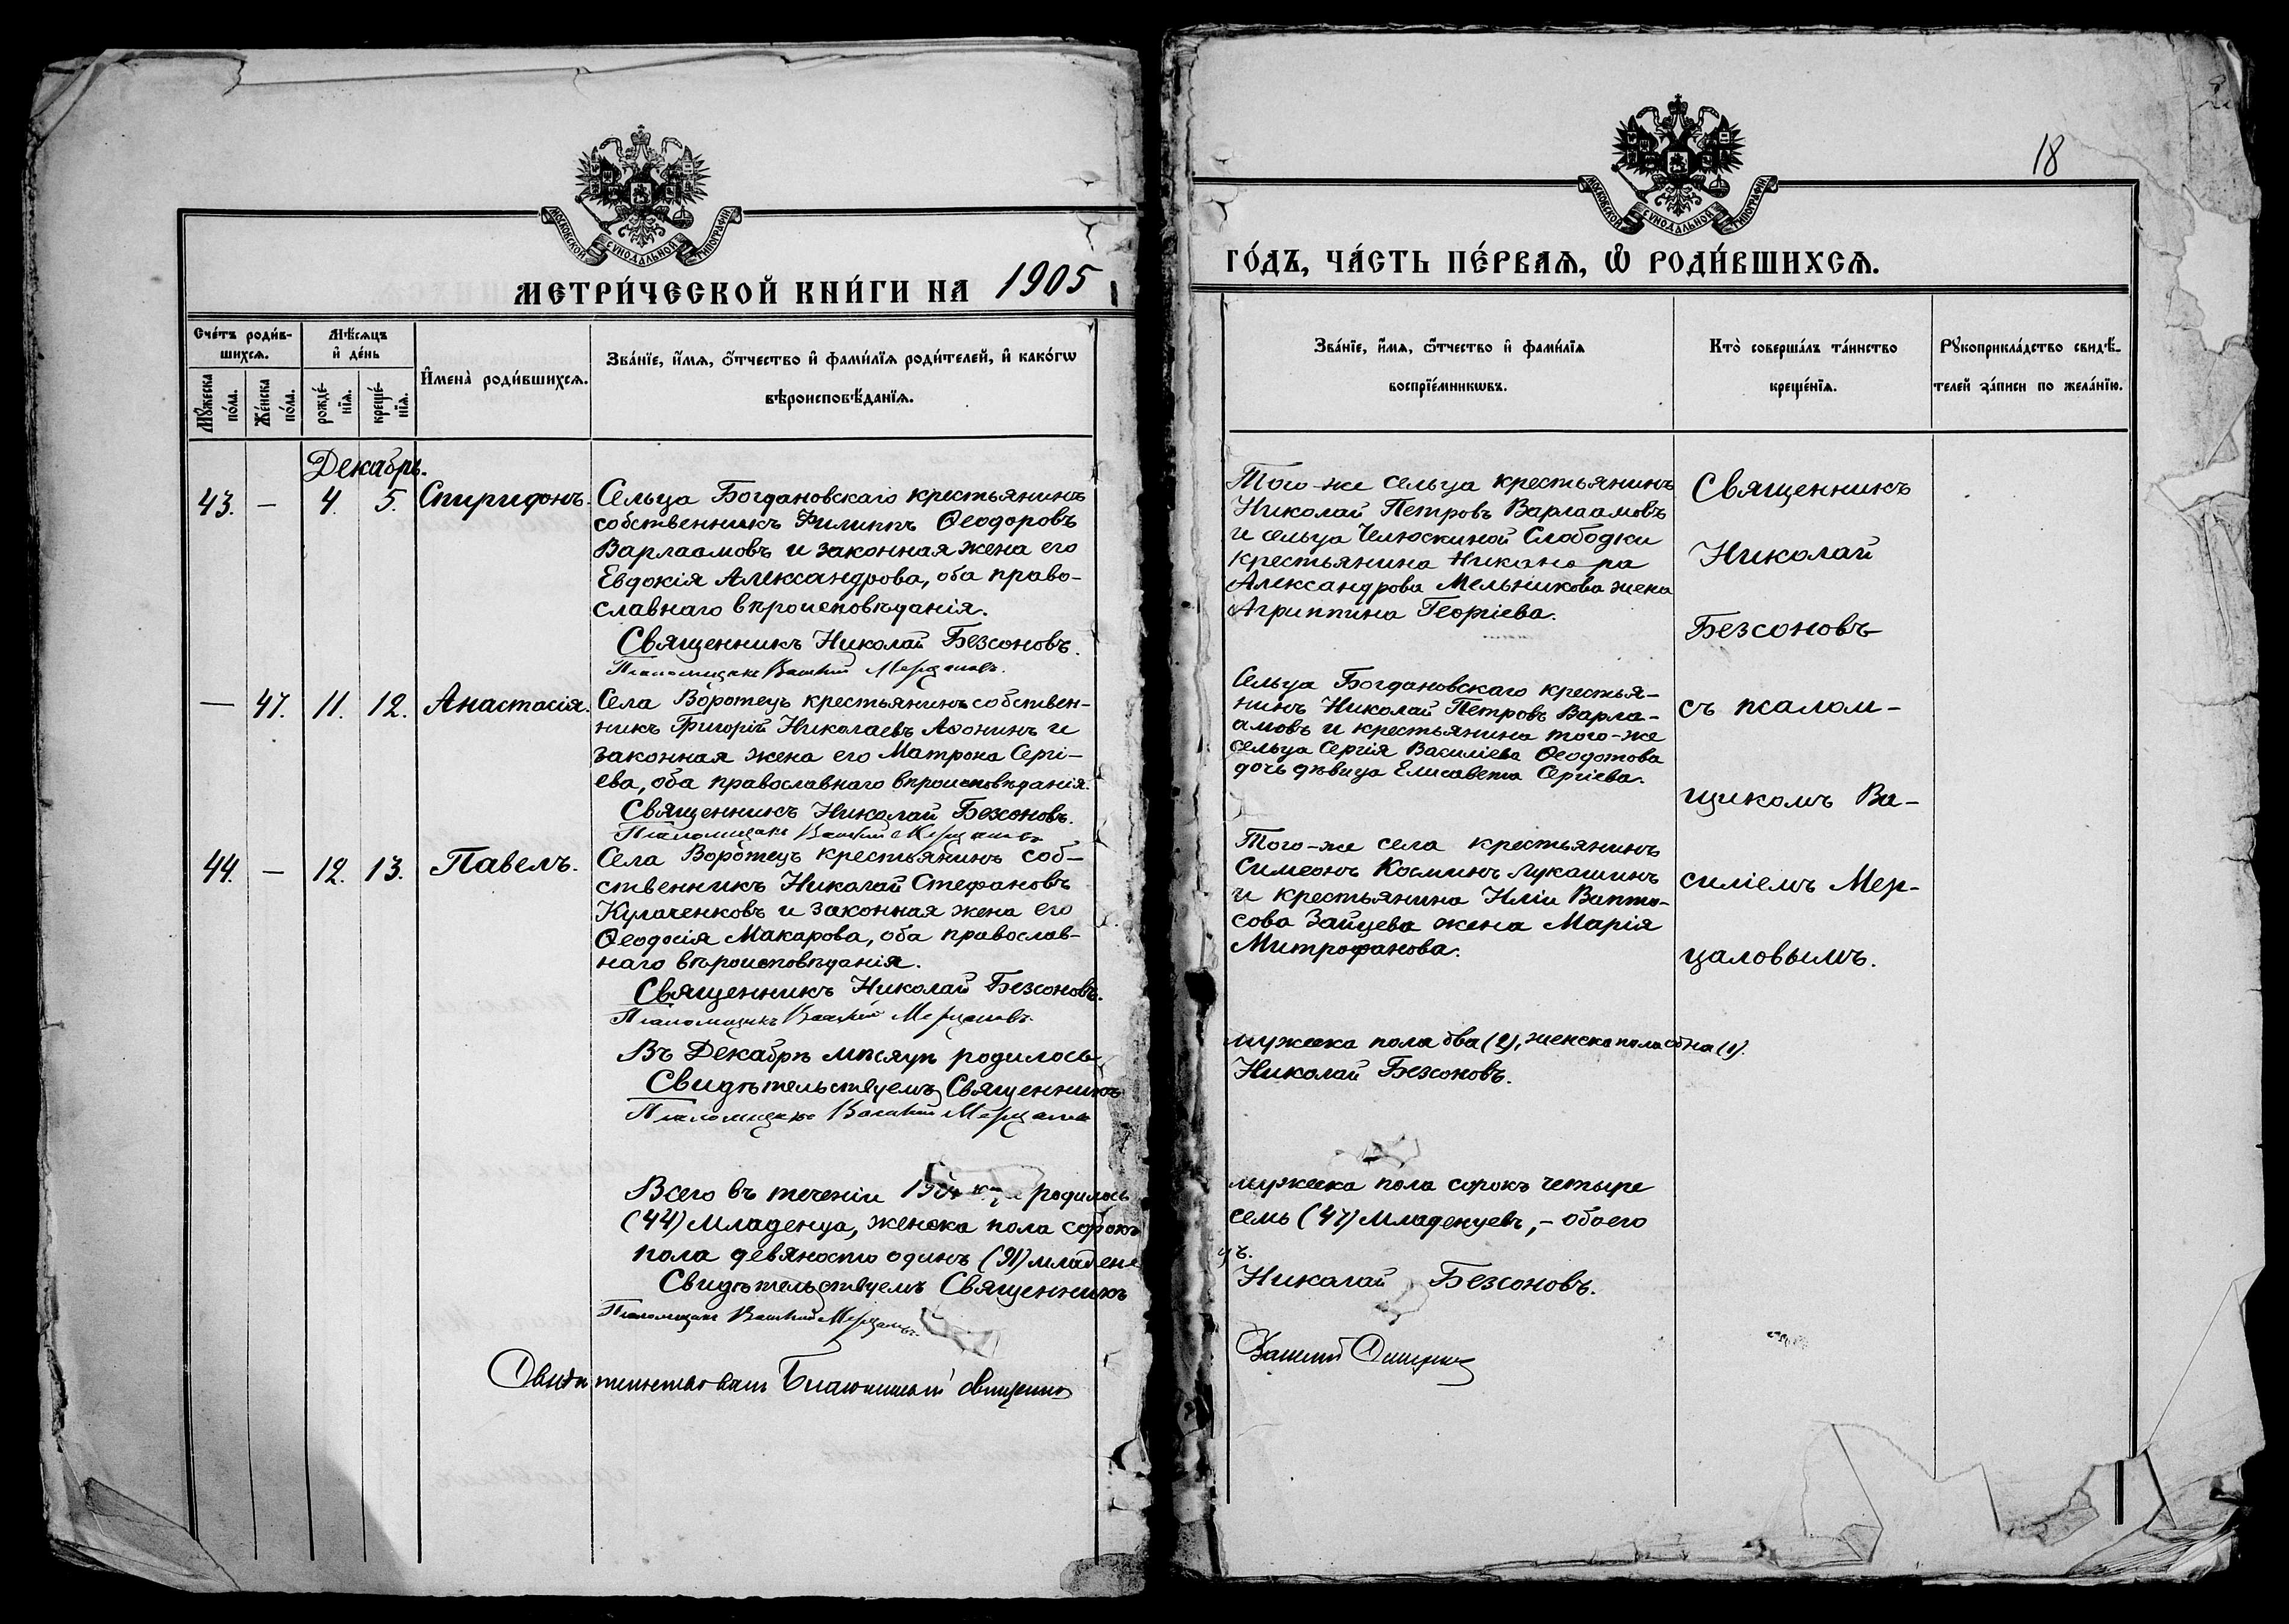 МОСКОВСКОЙ СУНОДАЛЬНОЙ ТИПОГРАФІИ
МЕТРИ́ЧЕСКОЙ КНИ́ГИ НА 1905
Сче́тъ роди́в-
шихсѧ.
Мѣ́сяцъ
и҆ де́нь
Мꙋ́жеска
по́ла.
Же́нска
по́ла.
рожде́-
нїѧ.
креще́-
нїѧ.
И҆мена̀ роди́вшихсѧ.
Зва́нїе, и҆́мѧ, ѻ҆́тчество и҆ фами́лїѧ роди́телей, и҆ како́гѡ
вѣроисповѣ́данїѧ.
Декабрь.
43. — 4. 5. Спиридонъ.
Сельца Богдановскаго крестьянинъ
собственникъ Филиппъ Ѳеодоровъ
Варлаамовъ и законная жена его
Евдокія Александрова, оба право-
славнаго вѣроисповѣданія.
Священникъ Николай Безсоновъ.
Псаломщикъ Василій Мерцаловъ.
— 47. 11. 12. Анастасія.
Села Воротецъ крестьянинъ собствен-
никъ Григорій Николаевъ Аѳонинъ и
законная жена его Матрона Сергі-
ева, оба православнаго вѣроисповѣданія.
Священникъ Николай Безсоновъ.
Псаломщикъ Василій Мерцаловъ
44. — 12. 13. Павелъ.
Села Воротецъ крестьянинъ соб-
ственникъ Николай Стефановъ
Кулаченковъ и законная жена его
Ѳеодосія Макарова, оба православ-
наго вѣроисповѣданія.
Священникъ Николай Безсоновъ.
Псаломщикъ Василій Мерцаловъ.
Въ Декабрѣ мѣсяцѣ родилось
Свидѣтельствуемъ Священникъ
Псаломщикъ Василій Мерцаловъ
Всего въ теченіи родилось
(44) младенца, женска пола сорокъ
пола девяносто одинъ (91) младене
Свидѣтельствуемъ Священникъ
Псаломщикъ Василій Мерцаловъ.
Свидѣтельствовалъ Благочинный священникъ
18
МОСКОВСКОЙ СУНОДАЛЬНОЙ ТИПОГРАФІИ
ГО́ДЪ, ЧА́СТЬ ПЕ́РВАѦ, Ѡ҆ РОДИ́ВШИХСѦ.
Зва́нїе, и҆́мѧ, ѻ҆́тчество и҆ фами́лїѧ
воспрїе́мникѡвъ.
Кто̀ соверша́лъ та́инство
креще́нїѧ.
Рꙋкоприкла́дство свидѣ́-
телей за́писи по жела́нїю.
Того-же сельца крестьянинъ
Николай Петровъ Варлаамовъ
и сельца Челюскиной Слободки
крестьянина Никанора
Александрова Мельникова жена
Агриппина Георгіева.
Сельца Богдановскаго крестья-
нинъ Николай Петровъ Варла-
амовъ и крестьянина того-же
сельца Сергія Василіева Ѳеодотова
дочь дѣвица Елисавета Сергіева.
Того-же села крестьянинъ
Симеонъ Косминъ Лукашинъ
и крестьянина Иліи
Зайцева жена Марія
Митрофанова.
Священникъ
Николай
Безсоновъ
съ псалом-
щикомъ Ва-
силіемъ Мер-
цаловымъ.
мужеска пола два (2), женска пола одна (1).
Николай Безсоновъ.
мужеска пола сорокъ четыре
семь (47) младенцевъ, – обоего
цъ.
Николай Безсоновъ.
Василій